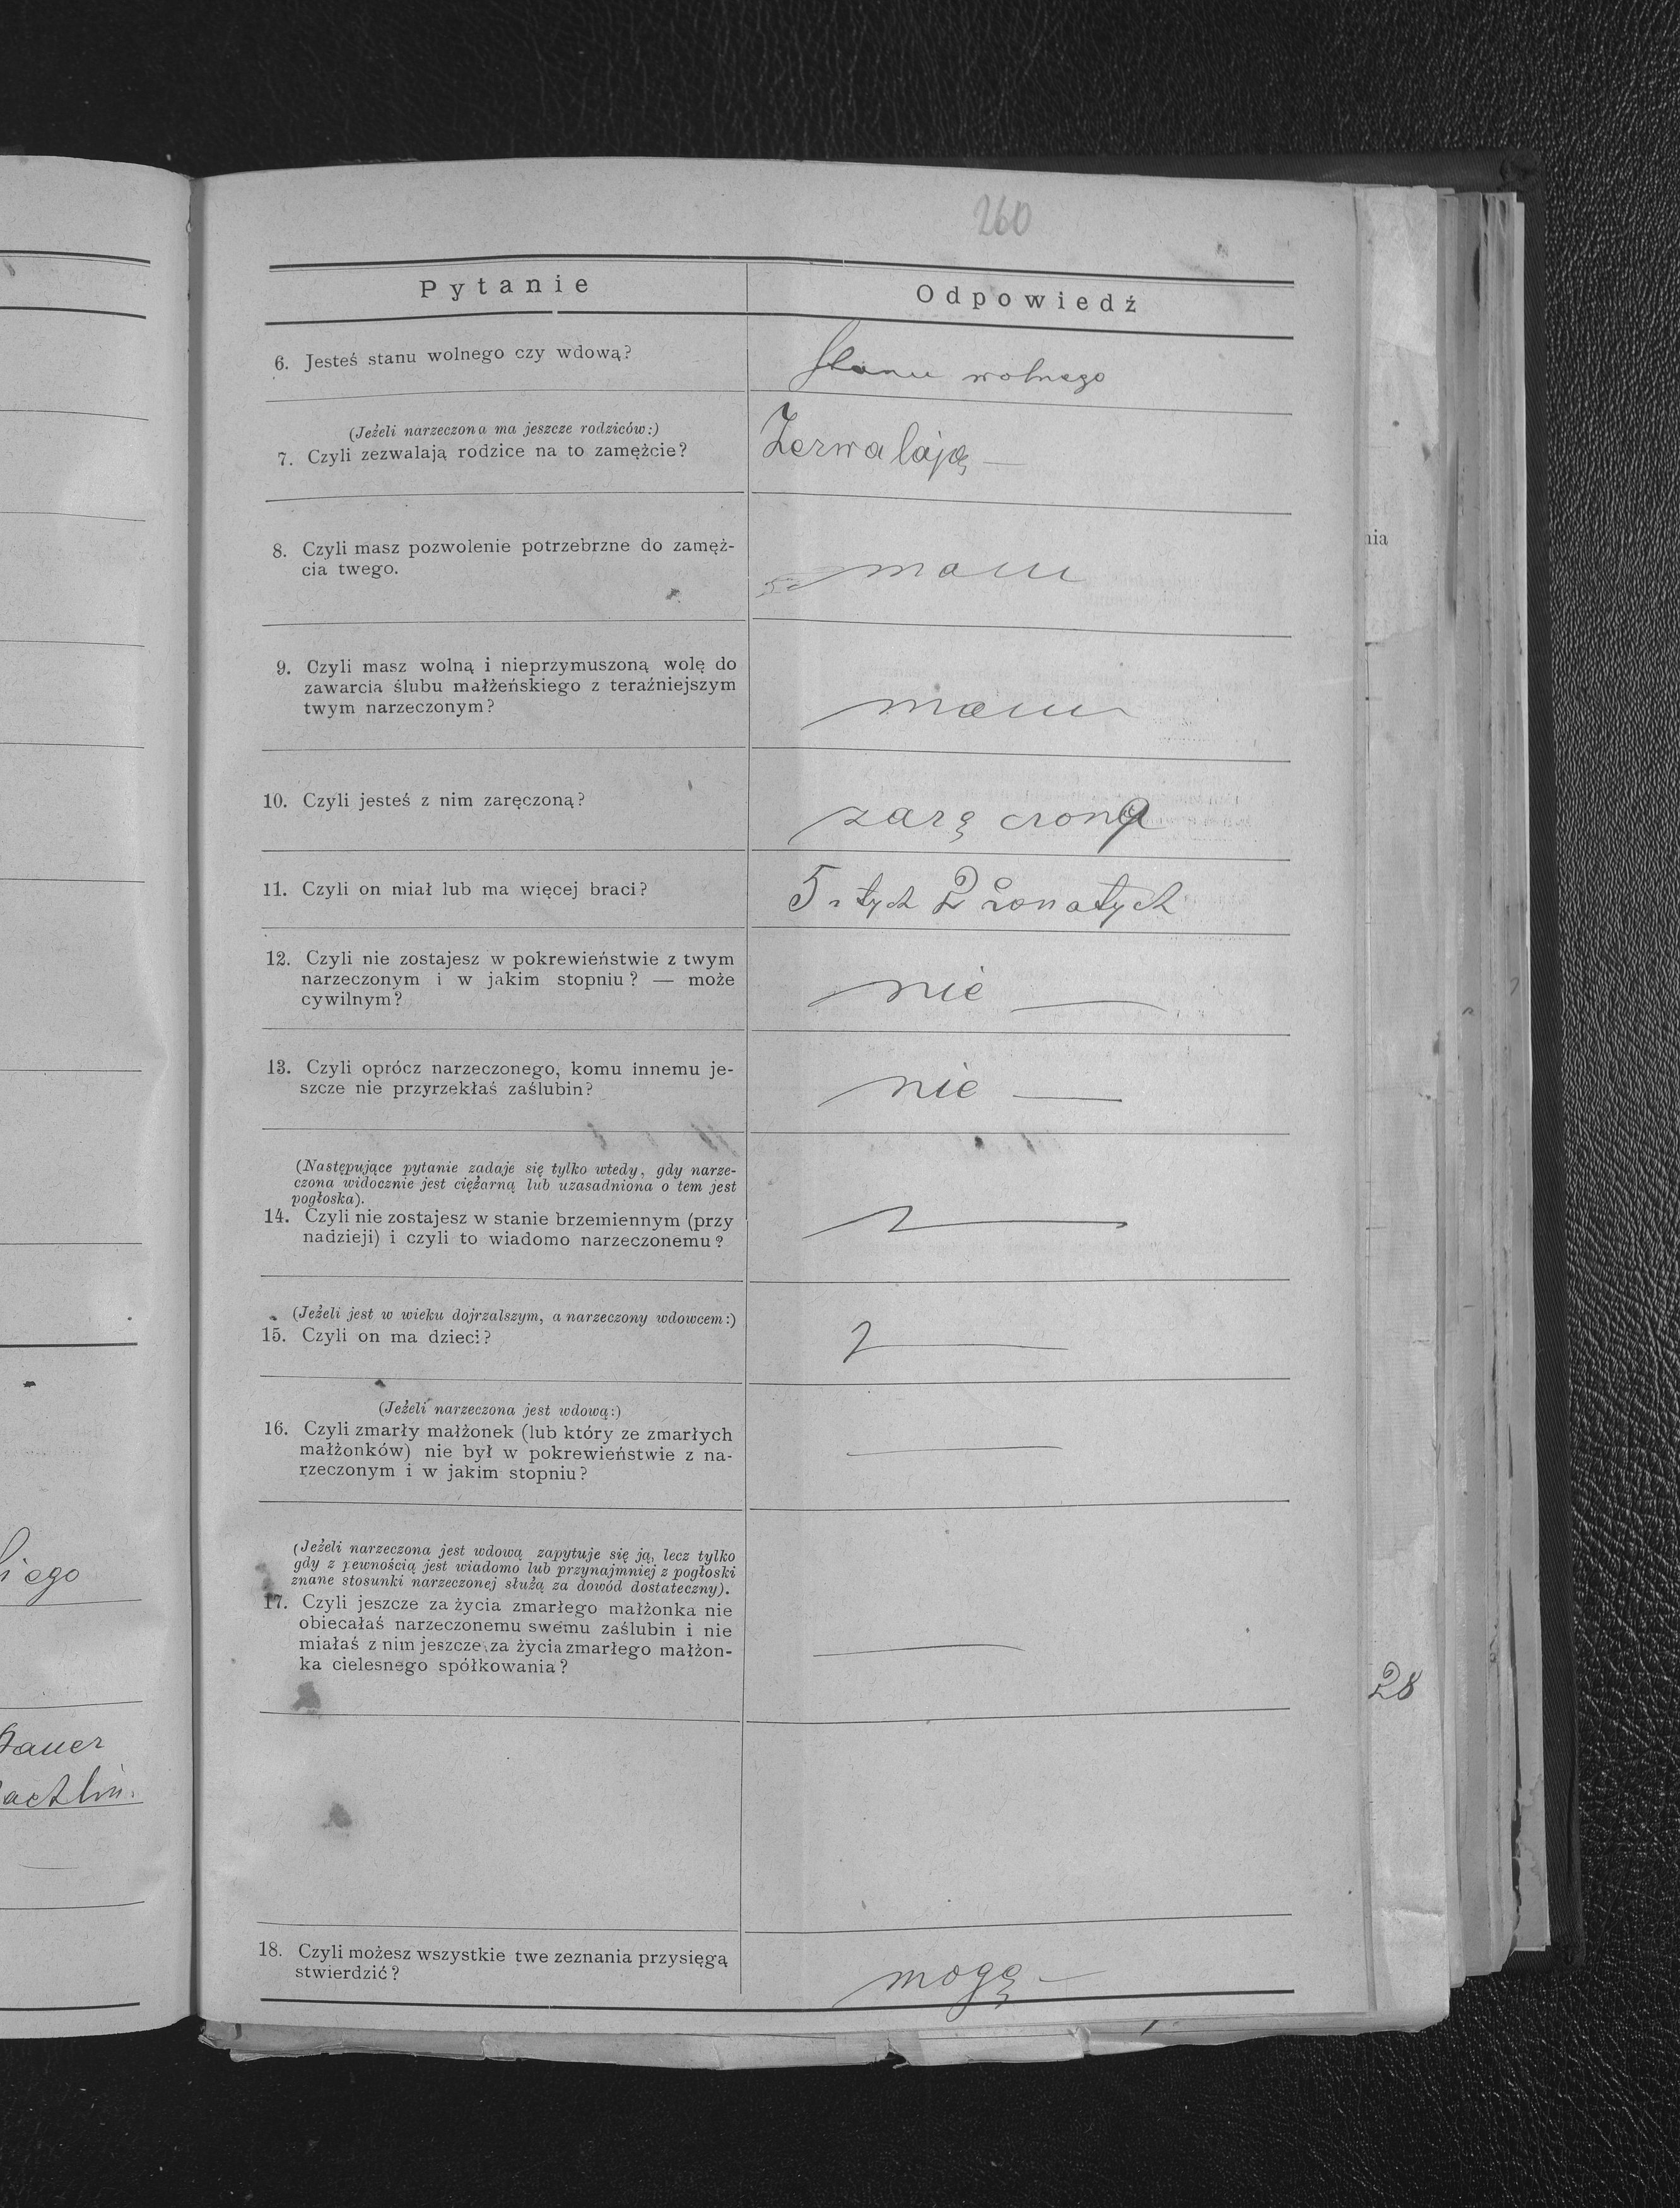 260
Pytanie
Odpowiedź
6. Jesteś stanu wolnego czy wdową?
Stanu wolnego
(Jeżeli narzeczona ma jeszcze rodziców:)
7. Czyli zezwalają rodzice na to zamężcie?
Zezwalają —
8. Czyli masz pozwolenie potrzebrzne do zamęż-
cia twego.
mam
9. Czyli masz wolną i nieprzymuszoną wolę do
zawarcia ślubu małżeńskiego z teraźniejszym
twym narzeczonym?
mam
10. Czyli jesteś z nim zaręczoną?
zaręczoną
11. Czyli on miał lub ma więcej braci?
5 z tych 2 żonatych
12. Czyli nie zostajesz w pokrewieństwie z twym
narzeczonym i w jakim stopniu? — może
cywilnym?
nie —
13. Czyli oprócz narzeczonego, komu innemu je-
szcze nie przyrzekłaś zaślubin?
nie —
(Następujące pytanie zadaje się tylko wtedy, gdy narze-
czona widocznie jest ciężarną lub uzasadniona o tem jest
pogłoska).
14. Czyli nie zostajesz w stanie brzemiennym (przy
nadzieji) i czyli to wiadomo narzeczonemu?
(Jeżeli jest w wieku dojrzalszym, a narzeczony wdowcem:)
15. Czyli on ma dzieci?
(Jeżeli narzeczona jest wdową:)
16. Czyli zmarły małżonek (lub który ze zmarłych
małżonków) nie był w pokrewieństwie z na-
rzeczonym i w jakim stopniu?
—
(Jeżeli narzeczona jest wdową zapytuje się ją, lecz tylko
gdy z pewnością jest wiadomo lub przynajmniej z pogłoski
znane stosunki narzeczonej służą za dowód dostateczny).
17. Czyli jeszcze za życia zmarłego małżonka nie
obiecałaś narzeczonemu swemu zaślubin i nie
miałaś z nim jeszcze za życia zmarłego małżon-
ka cielesnego spółkowania?
—
18. Czyli możesz wszystkie twe zeznania przysięgą
stwierdzić?
mogę —
nia
28